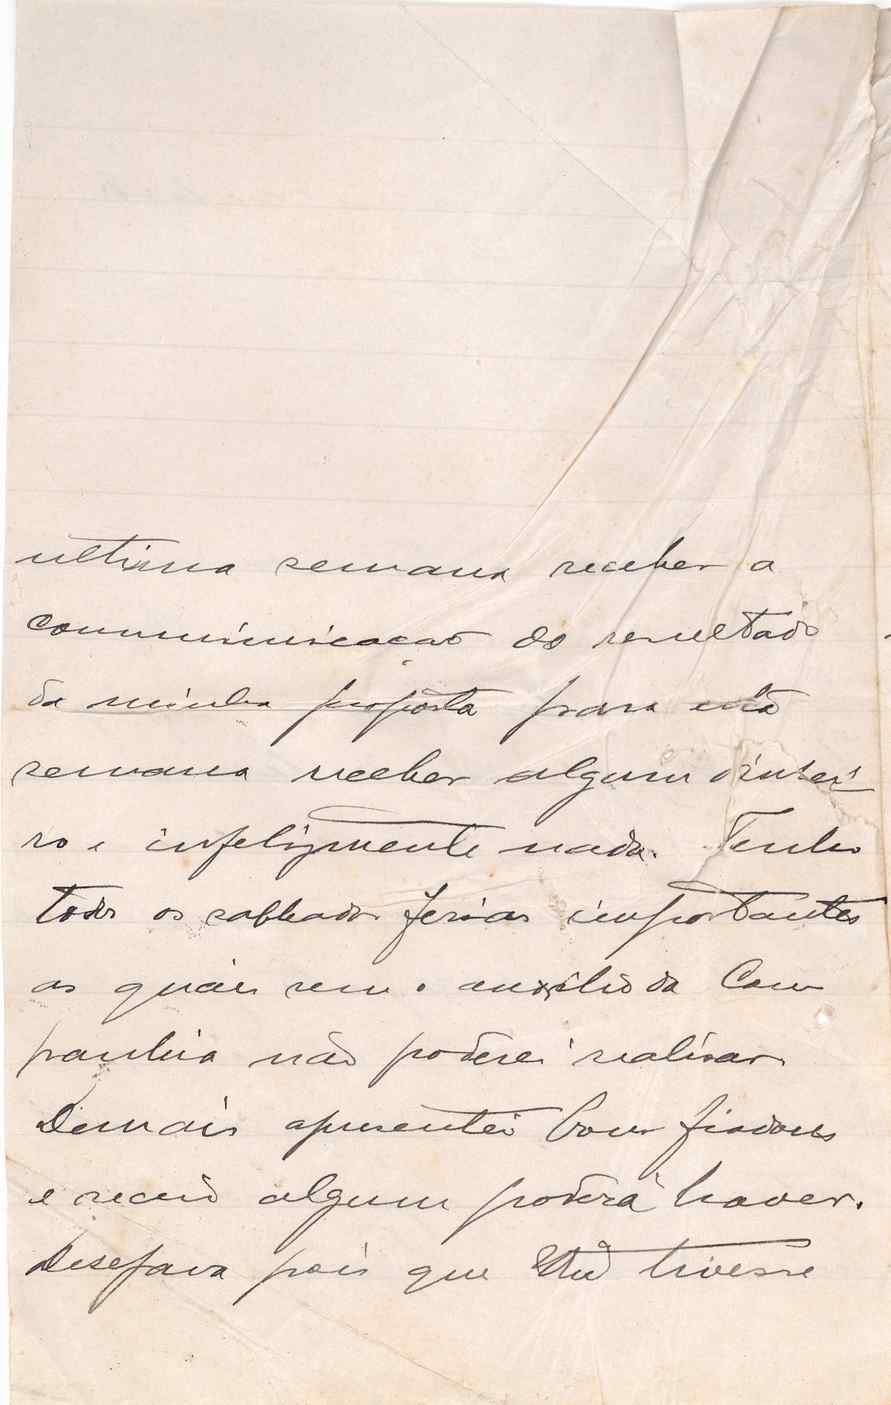 ultima semana receber a
communicacao do resultado
da minha proposta para esta
semana receber algum dinhei-
ro e infelizmente nada. Tenho
todos os sabbados ferias importantes
as quáis sem o auxilio da Com
panhia não poderei realisar.
Demais apresentei bons fiadores
e receio algum poderá haver.
Desejava pois que tivesse